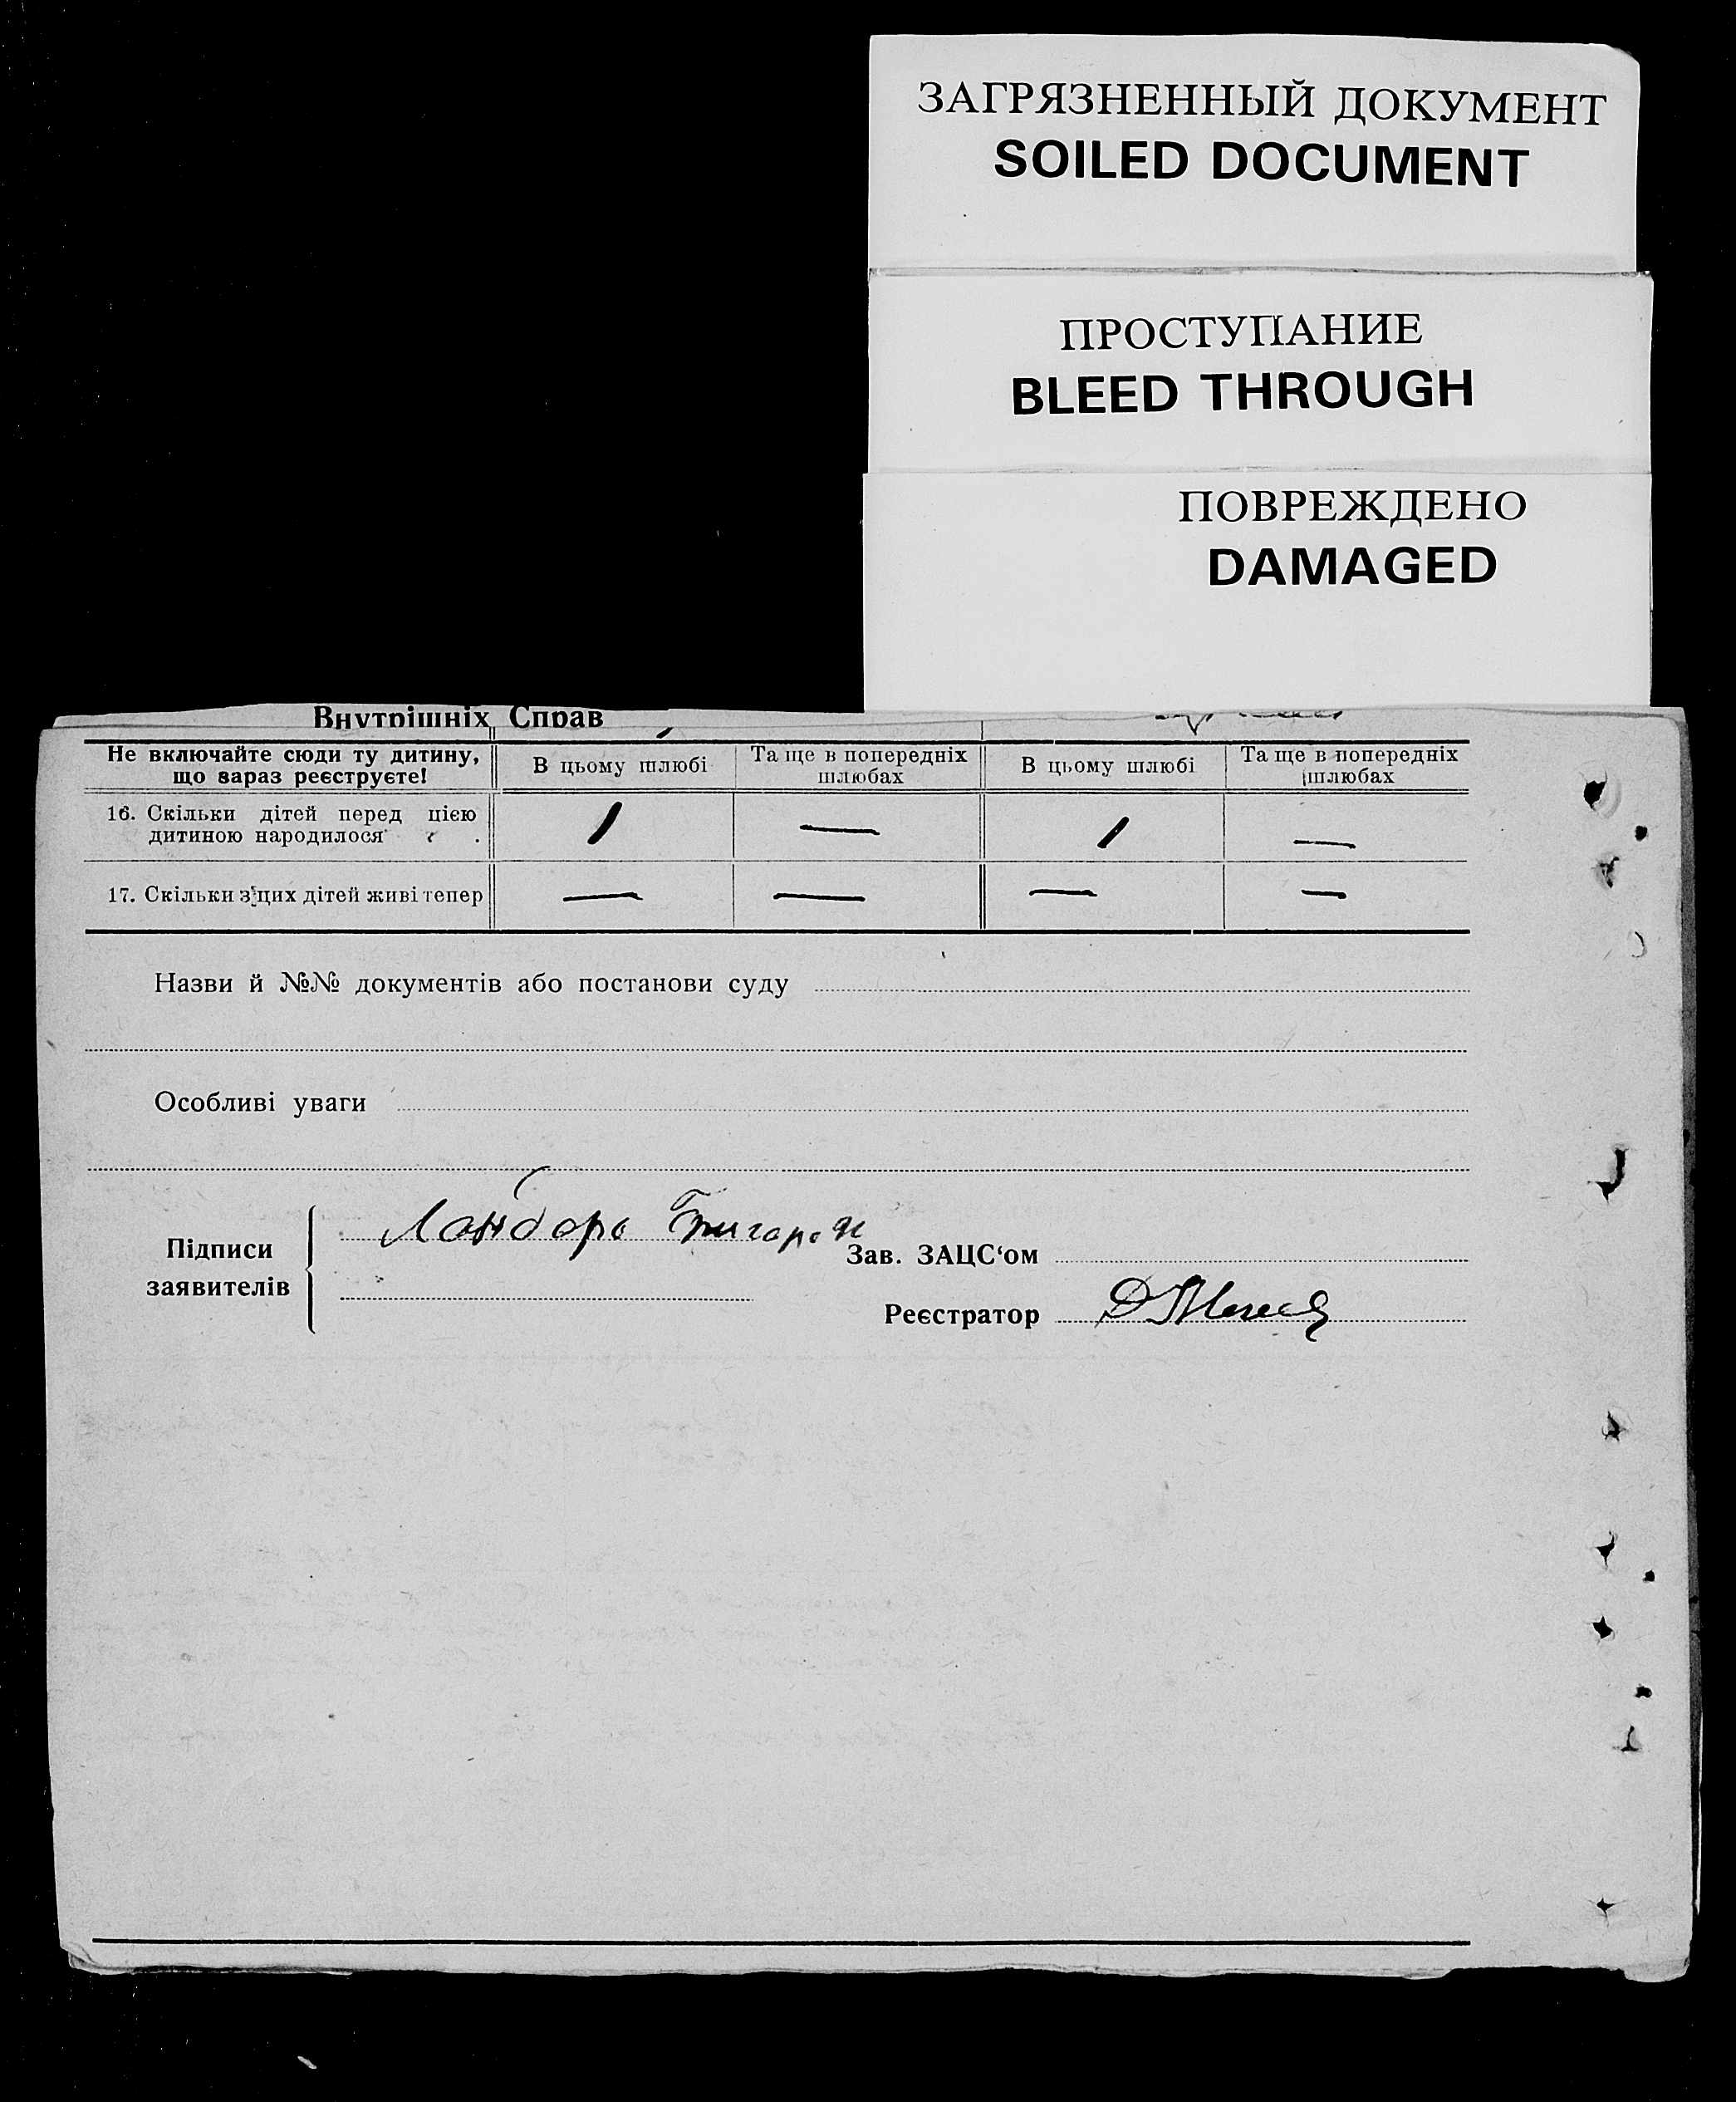 ЗАГРЯЗНЕННЫЙ ДОКУМЕНТ
SOILED DOCUMENT
ПРОСТУПАНИЕ
BLEED THROUGH
ПОВРЕЖДЕНО
DAMAGED
Внутрішніх Справ
Не включайте сюди ту дитину, що зараз реєструєте!
В цьому шлюбі
Та ще в попередніх шлюбах
В цьому шлюбі
Та ще в попередніх шлюбах
16. Скільки дітей перед цією дитиною народилося . . 1 — 1 —
17. Скільки з цих дітей живі тепер — — — —
Назви й №№ документів або постанови суду
Особливі уваги
Підписи заявителів
Зав. ЗАЦС‘ом
Реєстратор